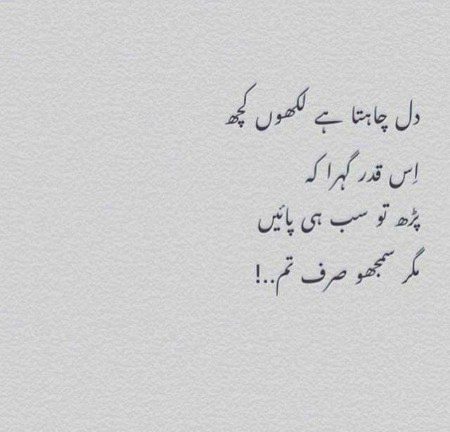 دل چاہتا ہے لکھوں کچھ
اِس قدر گہرا کہ
پڑھ تو سب ہی پائیں
مگر سمجھو صرف تم..!